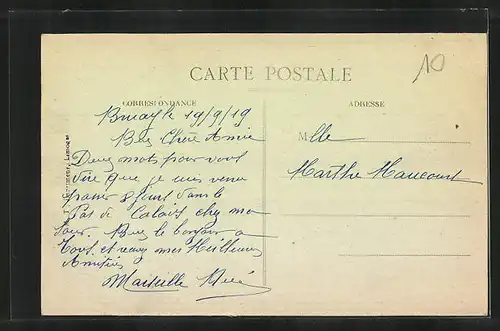 10
CARTE POSTALE
CORRESPONDANCE
ADRESSE
Bruay le 19/9/19
Bien Chère Amie
Deux mots pour vous
dire que je suis venu
passer 8 jours dans le
Pas de Calais chez ma
sœur. Bien le bonjour a
tous et recevez mes Meilleures
Amitiés
Marcelle
Mlle
Marthe Maucourt
Limoges